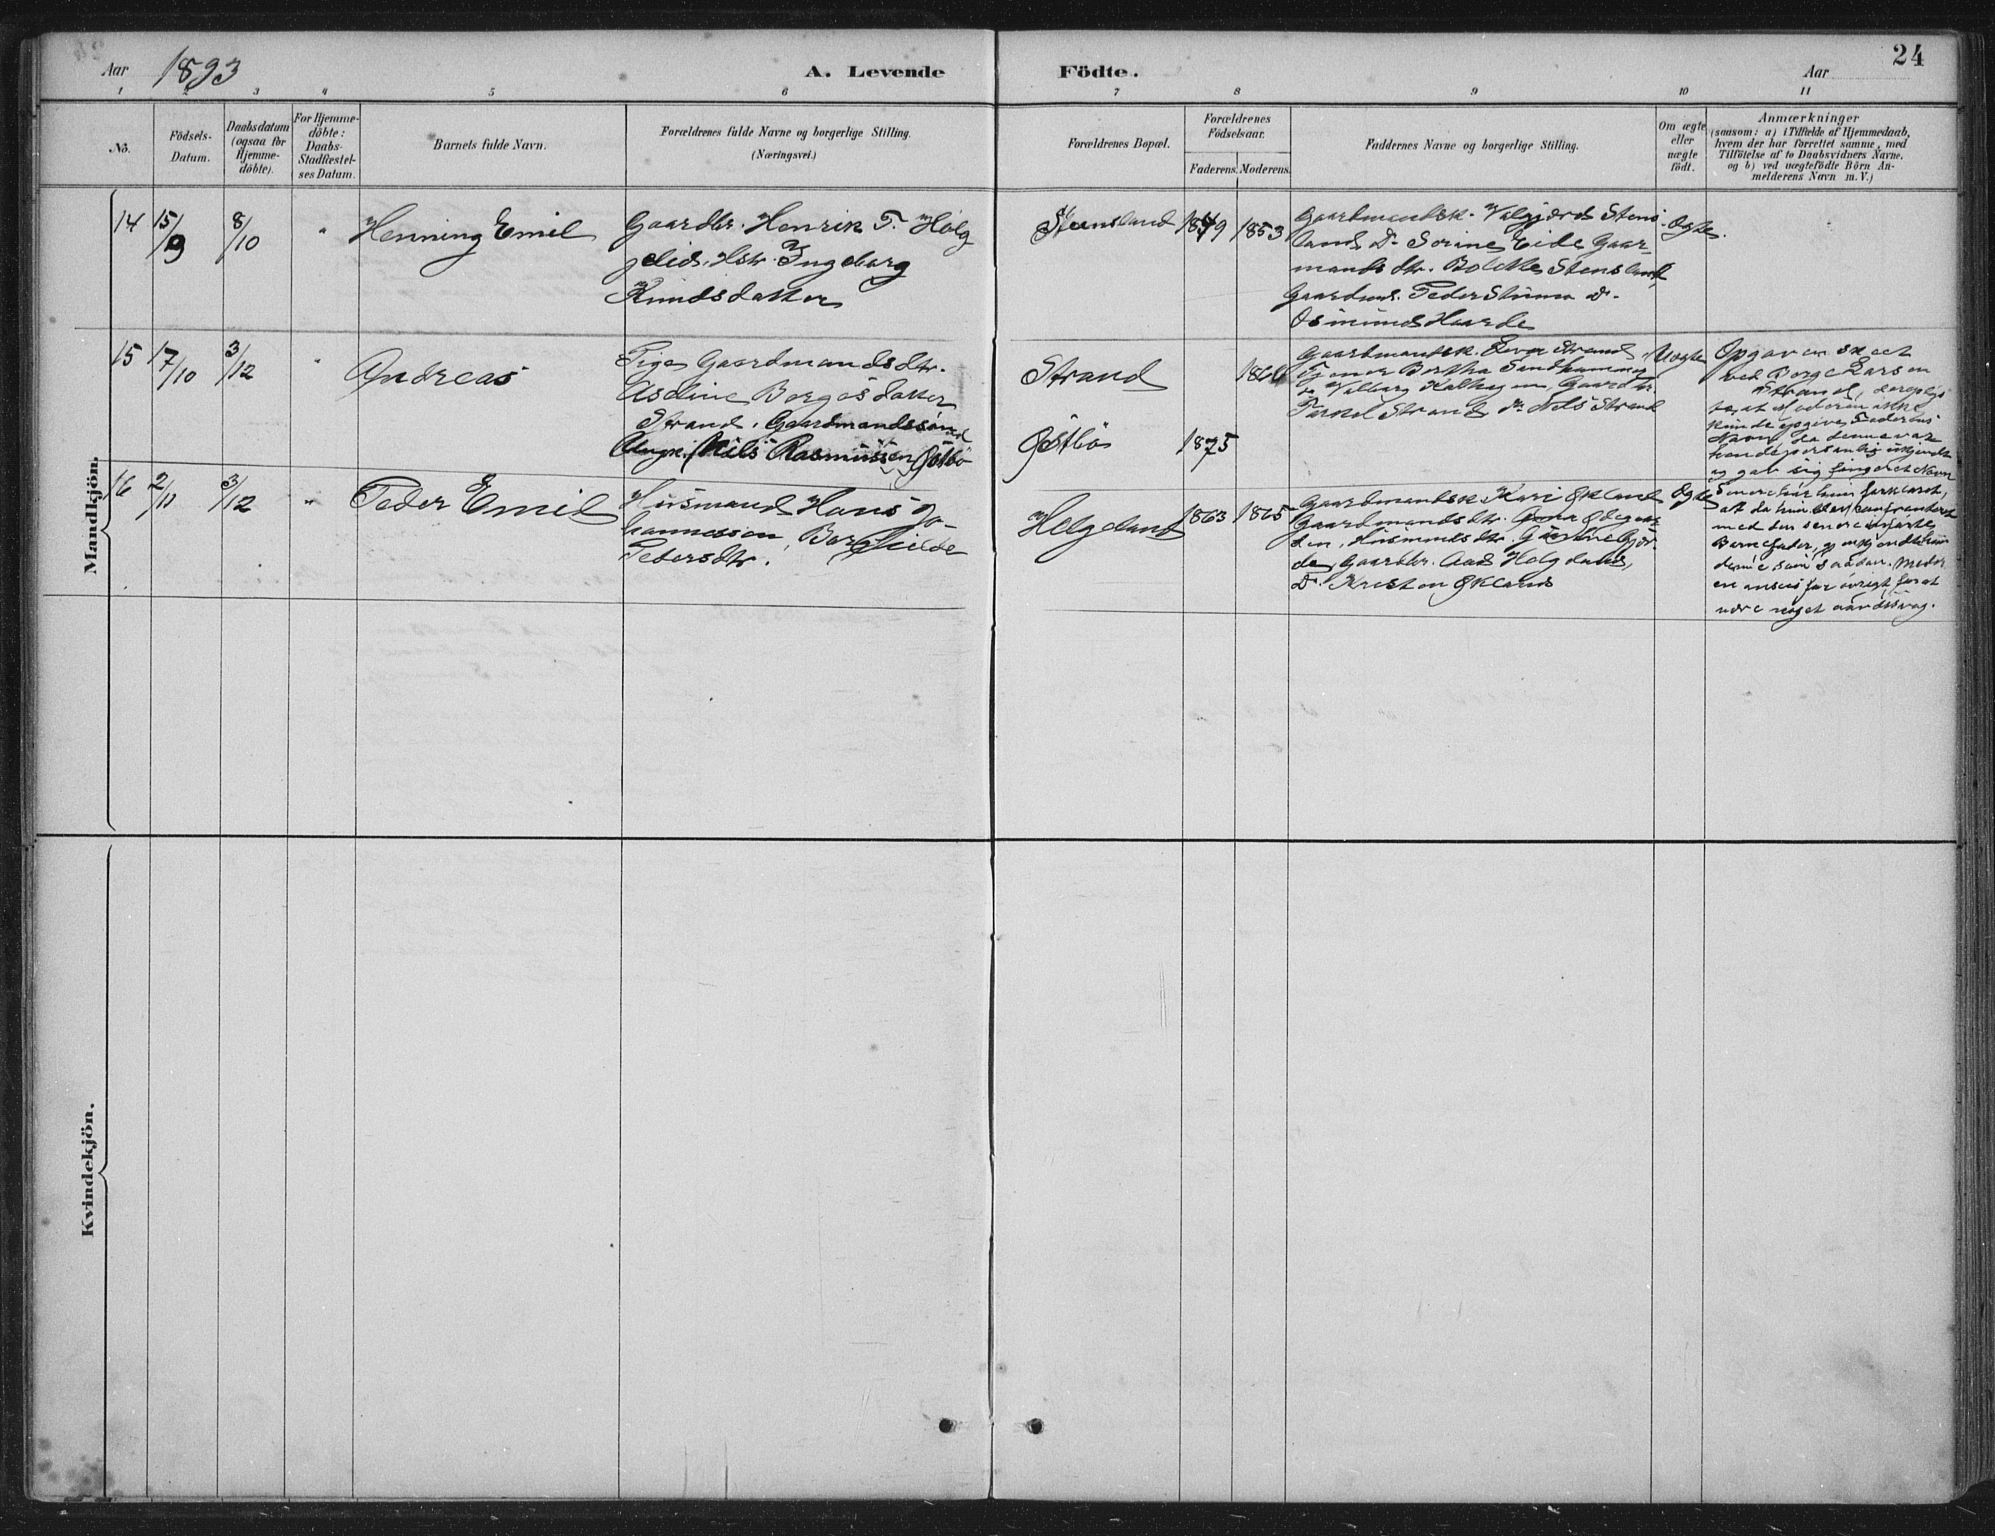 24
Aar 1893
A. Levende Födte.
Aar
1 2 3 4 5 6 7 8 9 10 11
No.
Födsels-Datum.
Daabsdatum (ogsaa for Hjemme-döbte).
For Hjemme-döbte: Daabs-Stadfæstel-ses Datum.
Barnets fulde Navn.
Forældrenes fulde Navne og borgerlige Stilling.
(Næringsvei.)
Forældrenes Bopæl.
Forældrenes Födselsaar.
Faderens. Moderens.
Faddernes Navne og borgerlige Stilling.
Om ægte eller uægte födt.
Anmærkninger
(saasom: a) i Tilfælde af Hjemmedaab,
hvem der har forrettet samme, med
Tilföielse af to Daabsvidners Navne.
og b) ved uægtefödte Börn An-
melderens Navn m. V.)
Mandkjön.
14 15/9 8/10 " Henning Emil
Gaardbr. Henrik T. Hölg
jelid. Hstr. Ingeborg
Knudsdatter
Steensland 1849 1853
Gaardmandsk. Valgjerd Stens
land D. Sorine Eide Gaar
mands dtr. Bolette Stensland
Gaardmd. Peder D.
Osmund Haarde
Ægte.
15 17/10 3/12 " Andreas
Pige Gaardmandsdtr.
Aseline Borgesdatter
Strand, Gaardmandssön
Nils Rasmussen Östbö
Strand
Östbö 1875
Gaardmandsk. Strand
Tjener Bertha Sandhammer
Valborg Gaardbr.
Strand Nils Strand
Uægte
Opgaven skeet
ved Borge Larsen
Strand,
at Moderen ikke
kunde opgive Faderens
Navn, da denne var
hende personlig ukjendt
og gav sig fingeret Navn
Senere har hun forklaret,
at da hun blev konfronteret
med den senere
Barnefader, gjenkjendte hun
denne som saadan. Mode
en ansees for övrigt for at
være noget aandssvag.
16 2/11 3/12 " Peder Emil
Husmand Hans Jo-
hannessen, Borghilde
Pedersdtr.
Helgeland 1863 1865
Gaardmandsk. Kari Økland
Gaardmandsdtr. Anna Ødegaar
den, Husmandsdtr. Gjer
de, Gaardbr. Aad Helgeland,
D. Kristen Økland
Ægte
Kvindekjön.